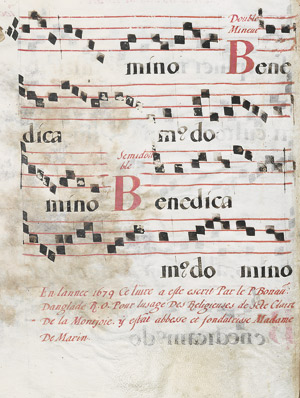 Double
Mineur
mino Bene
dica mꝰ do
Semidou
ble
mino Benedica
mꝰ do mino
En lannee 1679 Ce liure a esté escrit Par le P. Bonau.
Danglade R. O. Pour lusage Des Religieuses de Ste Claire
De la Monjoie. y estat abbesse et fondatrisse Madame
De Marin